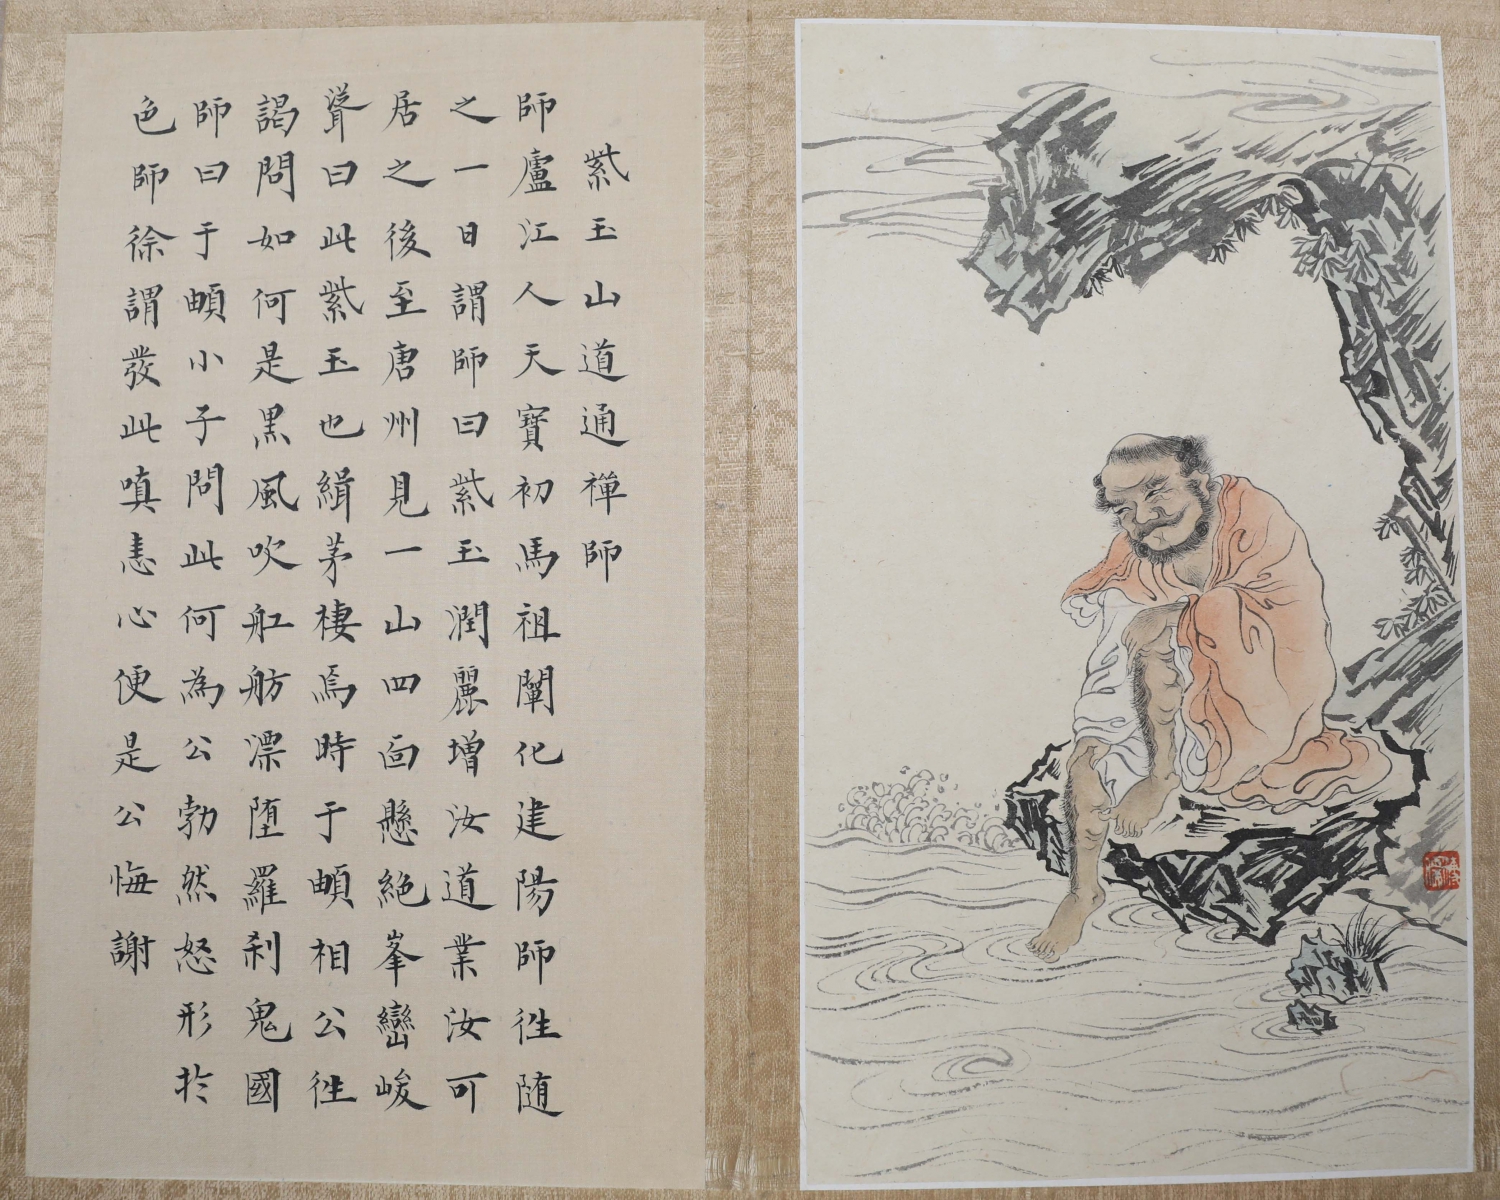 紫玉山道通禪師
師廬江人天寶初馬祖闡化建陽師徃随
之一日謂師曰紫玉潤麗增汝道業汝可
居之後至唐州見一山四面懸絶峯巒峻
聳曰此紫玉也緝茅棲焉時于頔相公徃
謁問如何是黑風吹舡舫漂堕羅刹鬼國
師曰于頔小子問此何為公勃然怒形於
色師徐謂發此嗔恚心便是公悔謝